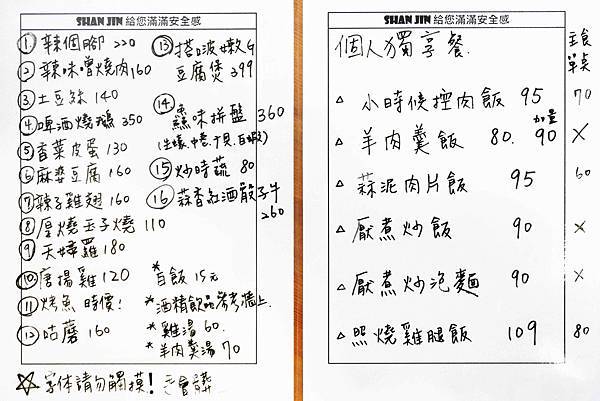 SHAN JIN 給您滿滿安全感
① 辣個腳 220
② 辣味噌燒肉 160
③ 土豆絲 140
④ 啤酒燒鵝 350
⑤ 香菜皮蛋 130
⑥ 麻婆豆腐 160
⑦ 辣子雞翅 160
⑧ 厚燒玉子燒 110
⑨ 天婦羅 180
⑩ 唐揚雞 120
⑪ 烤魚 時價!
⑫ 咕蘑 160
⑬ 搭啵嫩G
豆腐煲 399
⑭ 鱻味拼盤 360
(生蠔.中卷.干貝.白蝦)
⑮ 炒時蔬 80
⑯ 蒜香紅酒骰子牛
260
*白飯 15元
*酒精飲品參考牆上.
*雞湯 60.
*羊肉羹湯 70
☆字体請勿觸摸!
SHAN JIN 給您滿滿安全感
個人獨享餐.
主食
單點
△ 小時候控肉飯 95 70
△ 羊肉羹飯 80. 加量 90 ×
△ 蒜泥肉片飯 95 60
△ 厭煮炒飯 90 ×
△ 厭煮炒泡麵 90 ×
△ 照燒雞腿飯 109 80